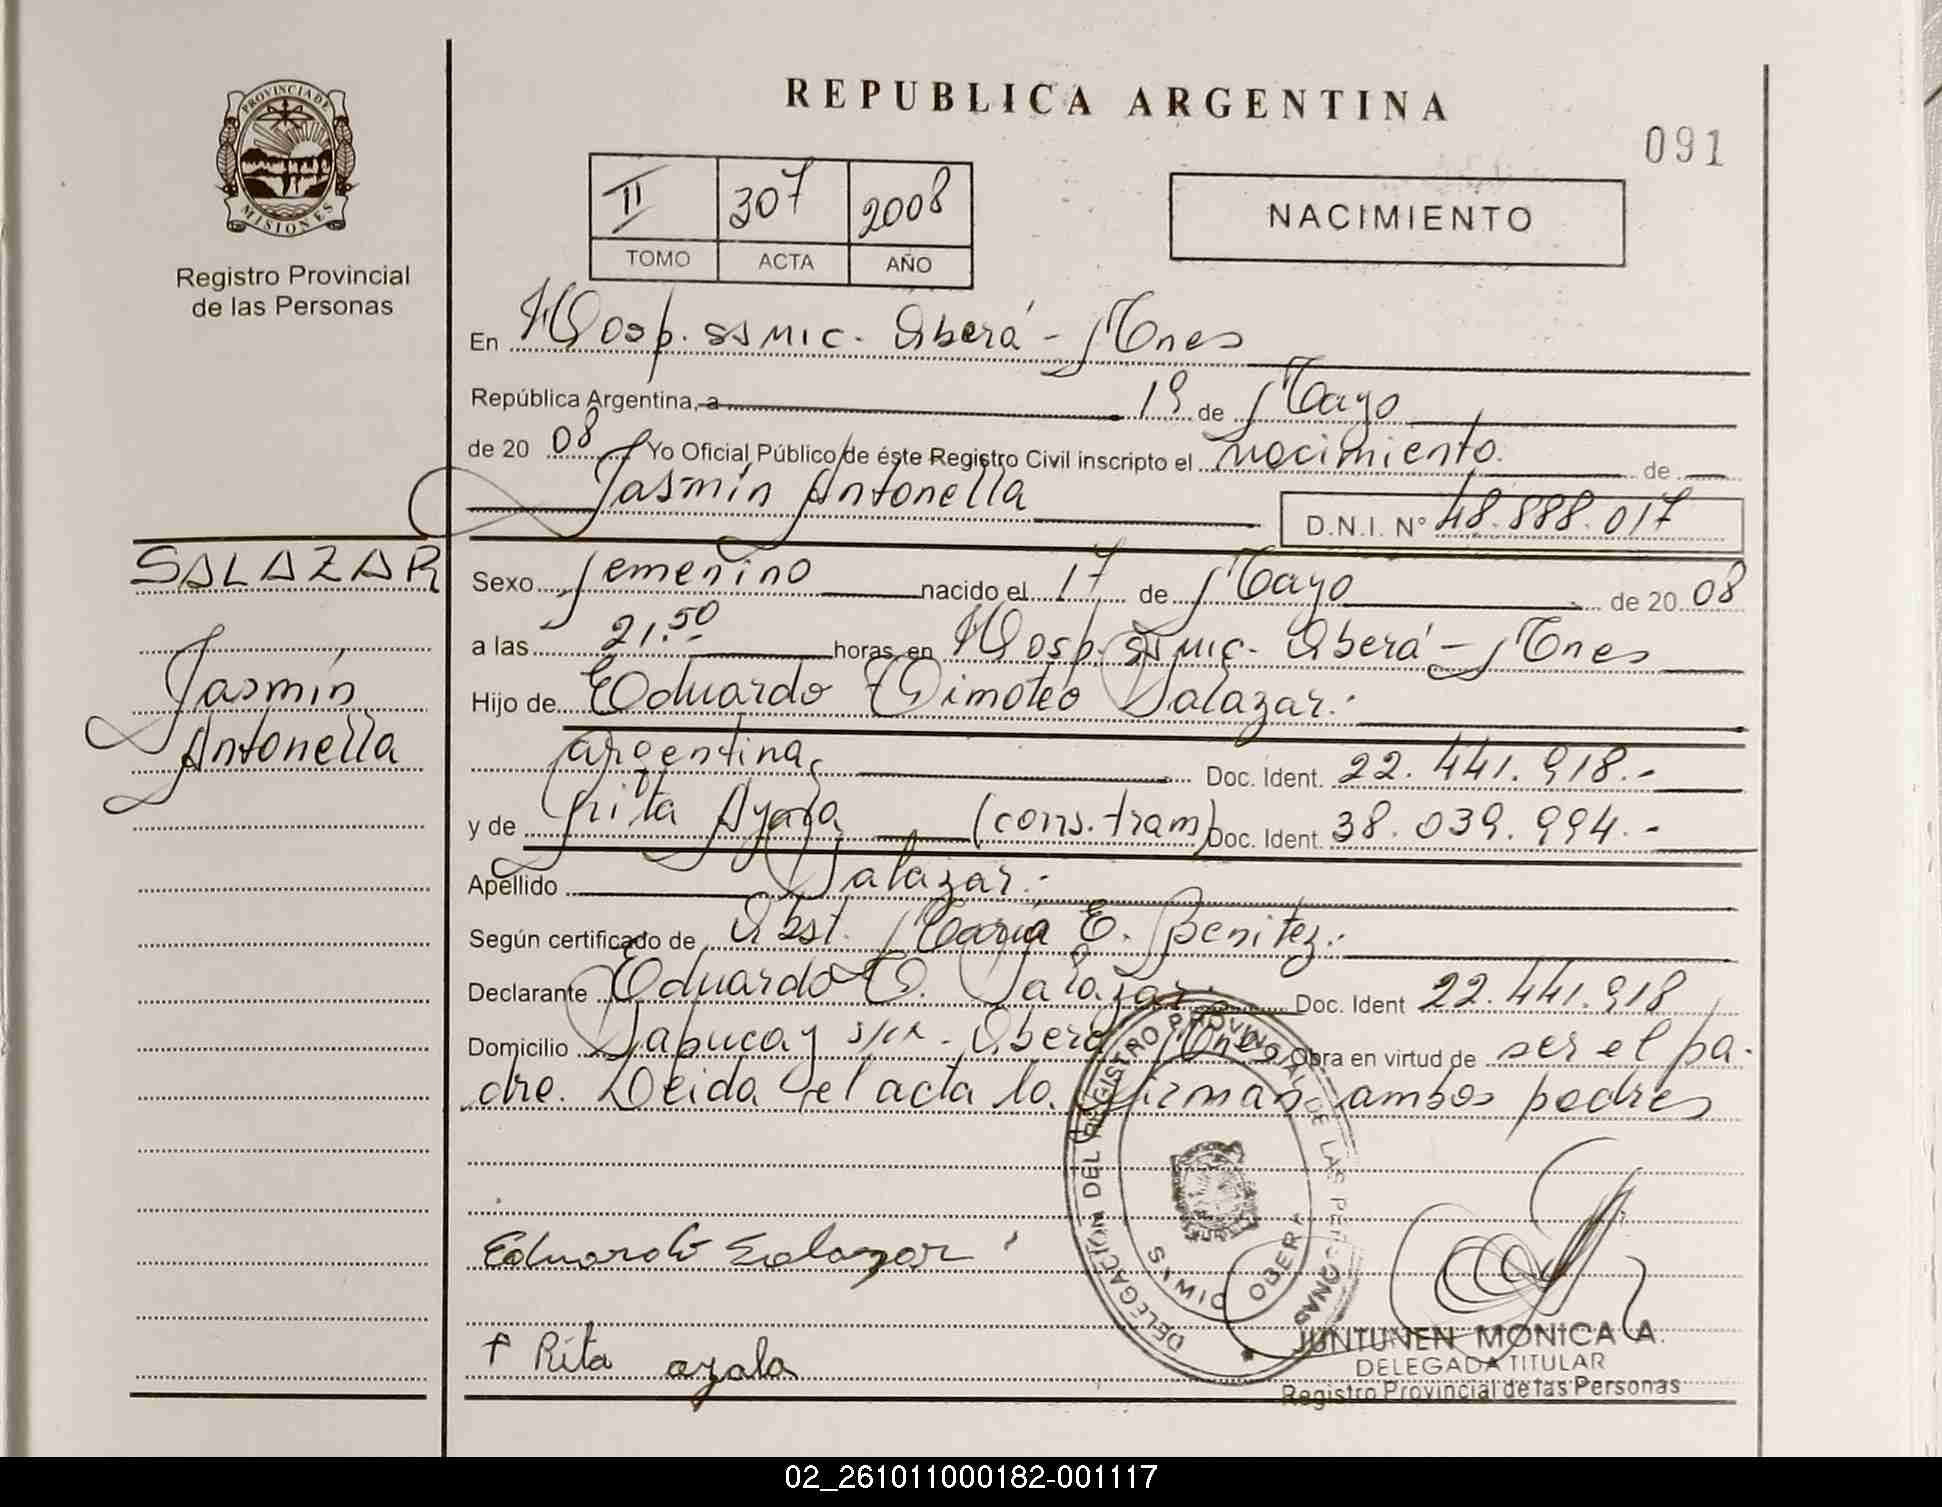 PROVINCIA DE
MISIONES
Registro Provincial
de las Personas
REPUBLICA ARGENTINA
091
II 307 2008
TOMO ACTA AÑO
NACIMIENTO
En Hosp. SSMIC. Oberá - Mnes
República Argentina, a 19 de Mayo
de 20 08 Yo Oficial Público de éste Registro Civil inscripto el nacimiento. de
Jasmín Antonella
D.N.I. N° 48.888.017
SALAZAR
Jasmín
Antonella
Sexo femenino nacido el 17 de Mayo de 20 08
a las 21.50 horas en Hosp. SSMIC. Oberá - Mnes
Hijo de Eduardo Timoteo Salazar.-
argentina Doc. Ident. 22.441.918.-
y de Rita Ayala (cons. tram) Doc. Ident. 38.039.994.-
Apellido Salazar.-
Según certificado de Obst. María E. Benitez.-
Declarante Eduardo T. Salazar.- Doc. Ident 22.441.918
Domicilio Sapucay s/n - Oberá Mnes Obra en virtud de ser el pa-
dre. Leida el acta la firman ambos padres
DELEGACION DEL REGISTRO PROVINCIAL DE LAS PERSONAS
OBERA
Eduardo Salazar
JUNTUNEN MONICA A.
DELEGADA TITULAR
Registro Provincial de las Personas
Rita ayala
02_261011000182-001117